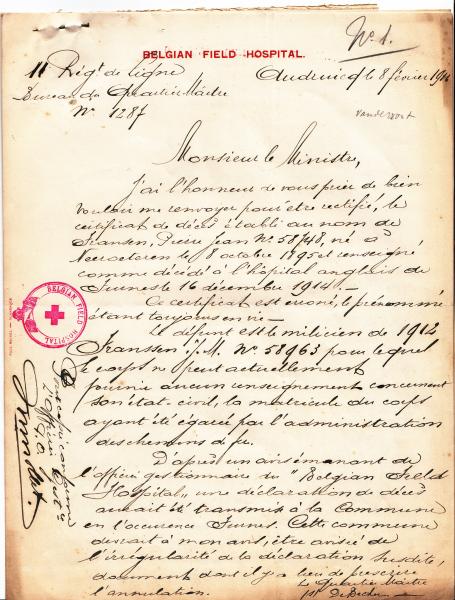 Nº 1.
BELGIAN FIELD HOSPITAL.
11 Régt de Ligne
Audruicq le 8 février 191
Bureau du Quartier Maître
Nº 1287
Monsieur le Ministre,
J'ai l'honneur de vous prier de bien
vouloir me renvoyer pour être rectifié, le
certificat de décès établi au nom de
Fransen, Pierre Jean Nº 58748, né à
Neeroeteren le 8 octobre 1895 et renseigné
comme décédé à l'hôpital anglais de
Furnes le 16 décembre 1914.-
Ce certificat est erroné, le prénommé
étant toujours en vie.-
Le défunt est le milicien de 1912
Franssen J.M. Nº 58963 pour lequel
le corps ne peut actuellement
fournir aucun renseignement concernant
son état-civil, la matricule du corps
ayant été égarée par l'administration
des chemins de fer.
D'après un avis émanant de
l'officier gestionnaire du "Belgian Field
Hospital", une déclaration de décès
aurait été transmis à la Commune
en l'occurence Furnes. Cette commune
devrait à mon avis, être avisée de
l'irrégularité de la déclaration susdite,
document dont il y a lieu de prescrire
l'annulation.
Le Quartier Maître
BELGIAN FIELD HOSPITAL
Pour copie conforme